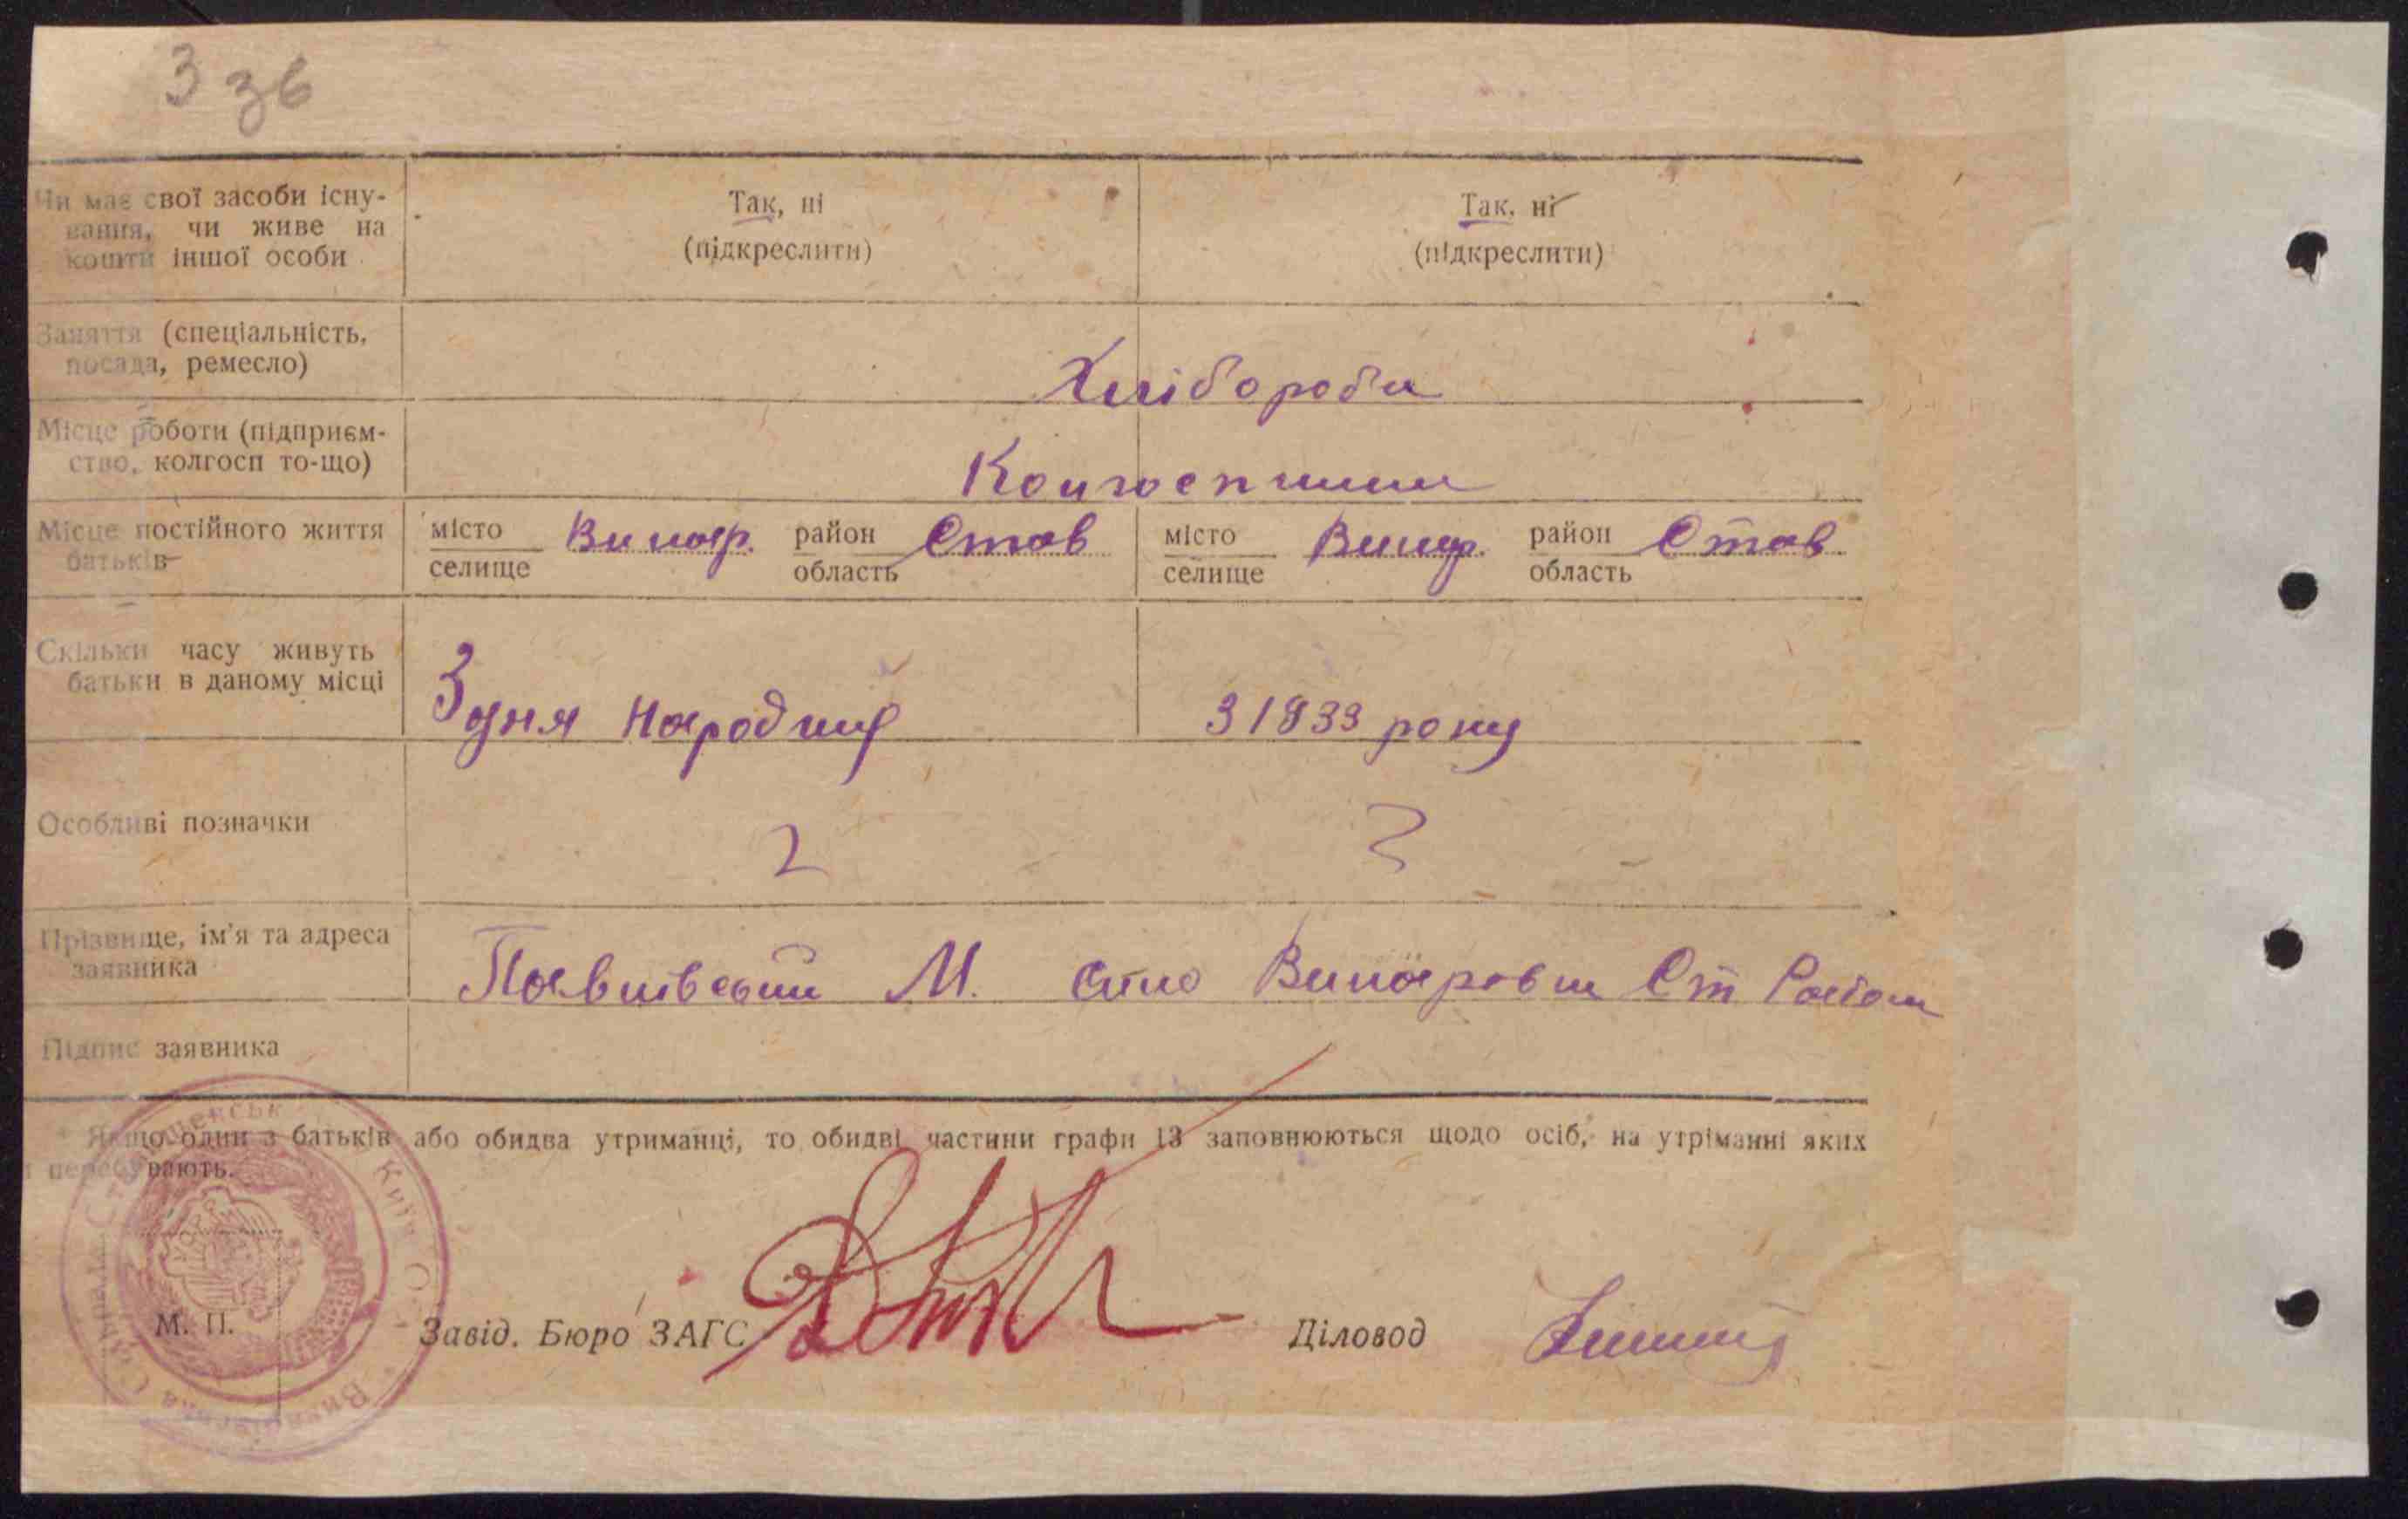 3 зв
Чи має свої засоби існу-
вання, чи живе на
кошти іншої особи
Так, ні
(підкреслити)
Так, ні
(підкреслити)
Заняття (спеціальність,
посада, ремесло)
Хлібороби
Місце роботи (підприєм-
ство, колгосп то-що)
Колгоспники
Місце постійного життя
батьків
місто
селище
Винар.
район
область
Став
місто
селище
Винар.
район
область
Став
Скільки часу живуть
батьки в даному місці
З дня народж
З 1933 року
Особливі позначки
Прізвище, ім'я та адреса
заявника
Павлівський М. село Винаровки Ст Району
Підпис заявника
Якщо один з батьків або обидва утриманці, то обидві частини графи 13 заповнюються щодо осіб, на утріманні яких
перебувають.
М. П.
Завід. Бюро ЗАГС
Діловод